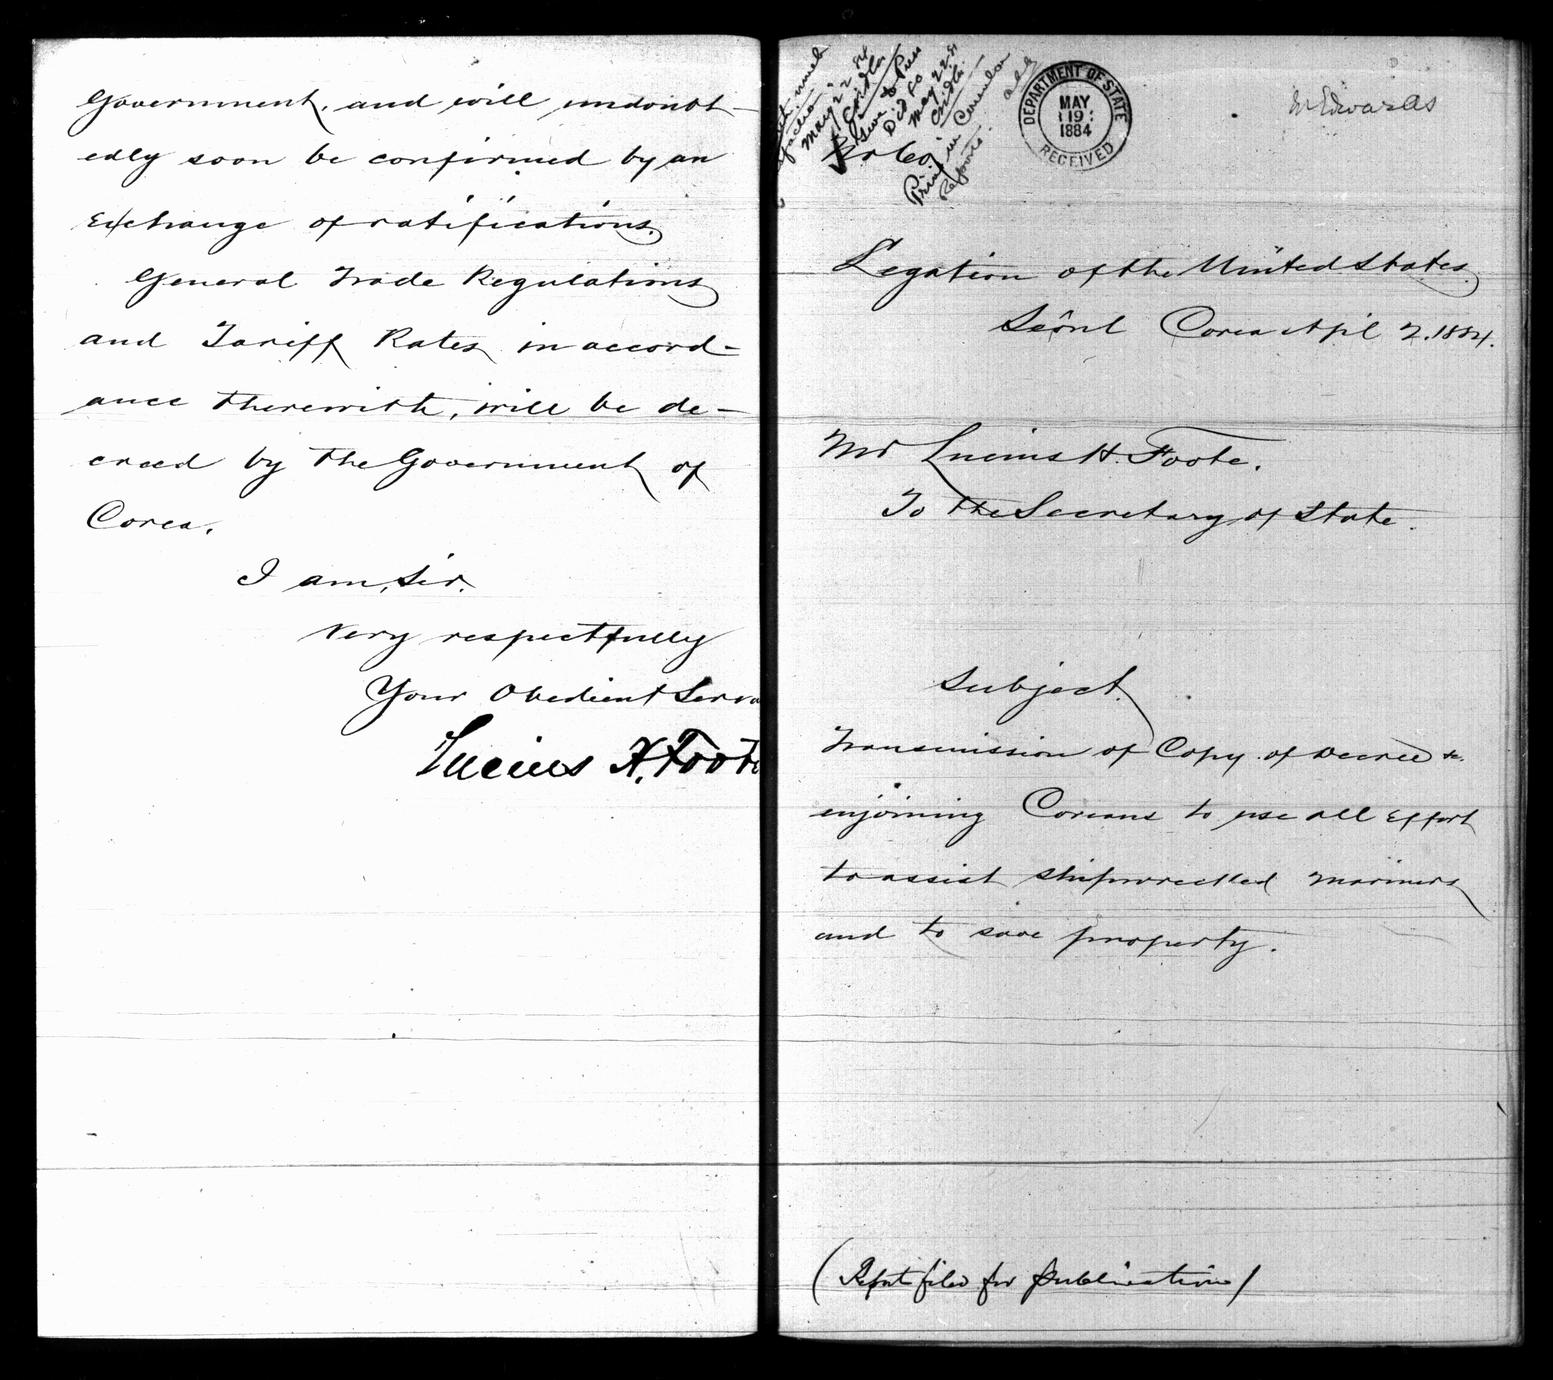 Government, and will undoubt-
edly soon be confirmed by an
Exchange of ratifications.
General Trade Regulations
and Tariff Rates, in accord-
ance therewith, will be de-
creed by the Government of
Corea.
I am, Sir,
Very respectfully
Your Obedient Serva
Lucius H. Foote
May 22 84
May 22 84
Print in Consular
Reports.
DEPARTMENT OF STATE
MAY
19
1884
RECEIVED
Mr Edwards
Legation of the United States
Seoul Corea Apil 2. 1884.
Mr Lucius H. Foote.
To the Secretary of State.
Subject
Transmission of Copy of Decree &c.
enjoining Coreans to use all Effort
to assist shipwrecked mariners
and to save property.
(Report filed for publication)